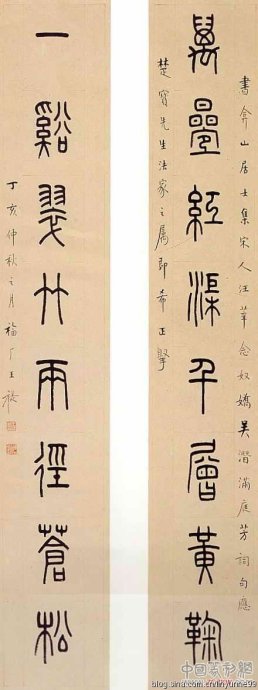 書弇山居士集宋人汪莘念奴嬌吳潛滿庭芳詞句應
萬疊紅渠千層黃鞠
楚寶先生法家之属即希正
一谿翠竹兩徑蒼松
丁亥仲秋之月福厂王禔
blog.sina.com.cn/linyunne99